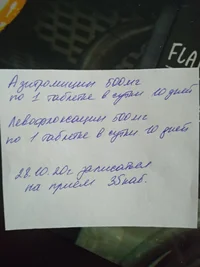 FLA
Азитромицин 500мг
по 1 таблетке в сутки 10 дней
Левофлоксацин 500мг
по 1 таблетке в сутки 10 дней
28.10.20г записался
на приём 35каб.